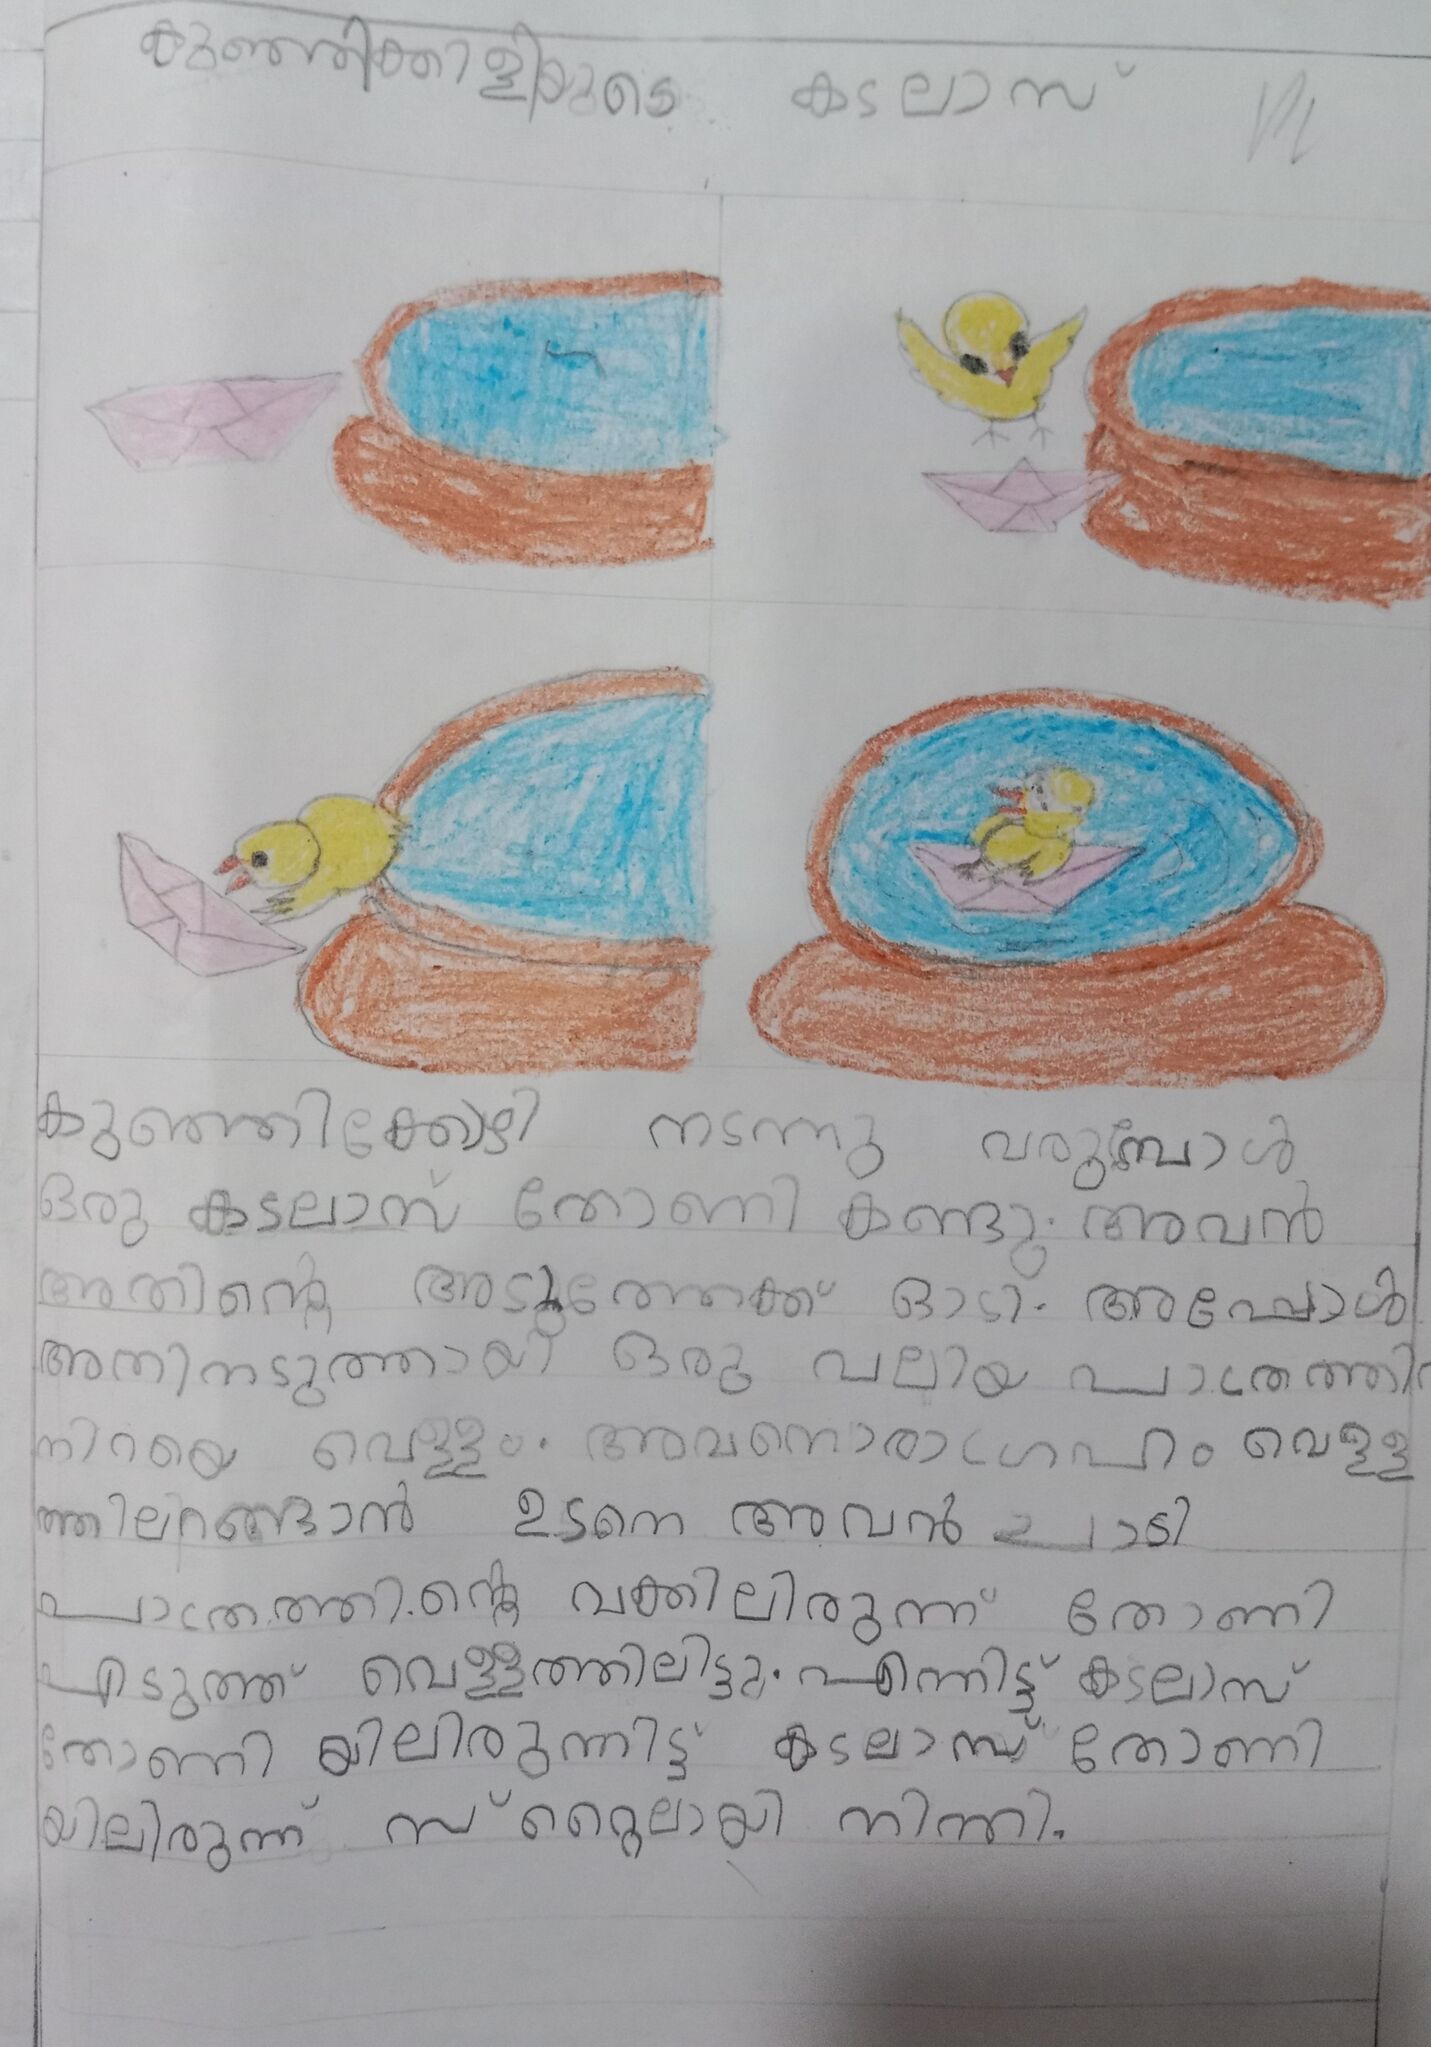 കുഞ്ഞിക്കിളിയുടെ കടലാസ്
കുഞ്ഞിക്കോഴി നടന്നു വരുമ്പോൾ
ഒരു കടലാസ് തോണി കണ്ടു. അവൻ
അതിന്റെ അടുത്തേക്ക് ഓടി. അപ്പോൾ
അതിനടുത്തായി ഒരു വലിയ പാത്രത്തിൽ
നിറയെ വെള്ളം. അവനൊരാഗ്രഹം വെള്ള
ത്തിലിറങ്ങാൻ ഉടനെ അവൻ ചാടി
പാത്രത്തിന്റെ വക്കിലിരുന്ന് തോണി
എടുത്ത് വെള്ളത്തിലിട്ടു. എന്നിട്ട് കടലാസ്
തോണി യിലിരുന്നിട്ട് കടലാസ് തോണി
യിലിരുന്ന് സ്റ്റൈലായി നിന്നി.